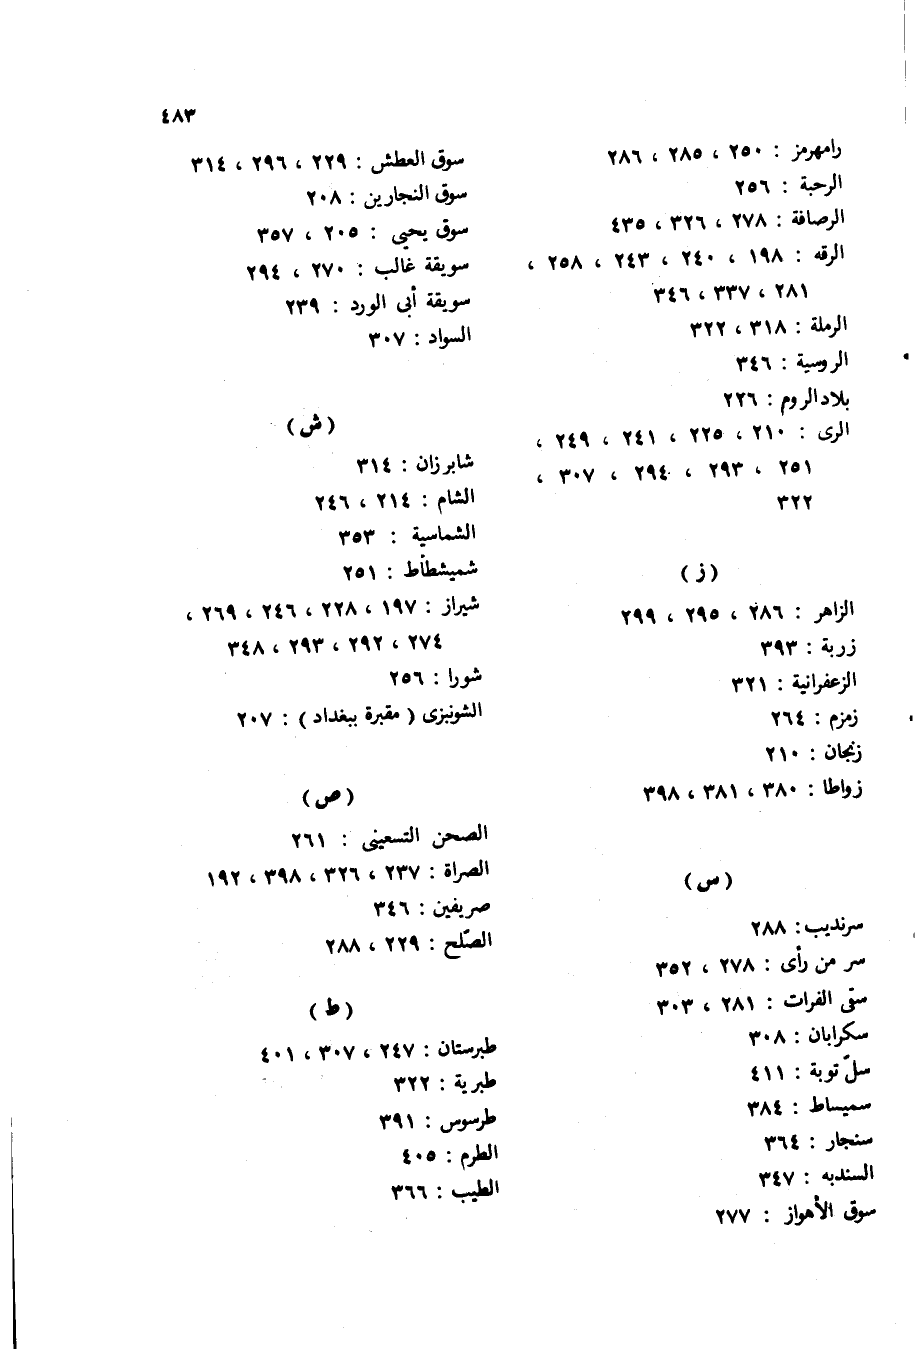 ٤٨٣
رامهرمز : ٢٥٠ ، ٢٨٥ ، ٢٨٦
الرحبة : ٢٥٦
الرصافة : ٢٧٨ ، ٣٢٦ ، ٤٣٥
الرقه : ١٩٨ ، ٢٤٠ ، ٢٤٣ ، ٢٥٨ ،
٢٨١ ، ٣٣٧ ، ٣٤٦
الرملة : ٣١٨ ، ٣٢٢
الروسية : ٣٤٦
بلاد الروم : ٢٢٦
الرى : ٢١٠ ، ٢٢٥ ، ٢٤١ ، ٢٤٩ ،
٢٥١ ، ٢٩٣ ، ٢٩٤ ، ٣٠٧ ،
٣٢٢
( ز )
الزاهر : ٢٨٦ ، ٢٩٥ ، ٢٩٩
زربة : ٣٩٣
الزعفرانية : ٣٢١
زمزم : ٢٦٤
زنجان : ٢١٠
زواطا : ٣٨٠ ، ٣٨١ ، ٣٩٨
( س )
سرنديب : ٢٨٨
سر من رأى : ٢٧٨ ، ٣٥٢
سقى الفرات : ٢٨١ ، ٣٠٣
سكرابان : ٣٠٨
سلّ توبة : ٤١١
سميساط : ٣٨٤
سنجار : ٣٦٤
السنديه : ٣٤٧
سوق الأهواز : ٢٧٧
سوق العطش : ٢٢٩ ، ٢٩٦ ، ٣١٤
سوق النجارين : ٢٠٨
سوق يحيى : ٢٠٥ ، ٣٥٧
سويقة غالب : ٢٧٠ ، ٢٩٤
سويقة أبى الورد : ٢٣٩
السواد : ٣٠٧
( ش )
شابرزان : ٣١٤
الشام : ٢١٤ ، ٢٤٦
الشماسية : ٣٥٣
شميشطاط : ٢٥١
شيراز : ١٩٧ ، ٢٢٨ ، ٢٤٦ ، ٢٦٩ ،
٢٧٤ ، ٢٩٢ ، ٢٩٣ ، ٣٤٨
شورا : ٢٥٦
الشونيزى ( مقبرة ببغداد ) : ٢٠٧
( ص )
الصحن التسعينى : ٢٦١
الصراة : ٢٣٧ ، ٣٢٦ ، ٣٩٨ ، ١٩٢
صريفين : ٣٤٦
الصّلح : ٢٢٩ ، ٢٨٨
( ط )
طبرستان : ٢٤٧ ، ٣٠٧ ، ٤٠١
طبرية : ٣٢٢
طرسوس : ٣٩١
الطرم : ٤٠٥
الطيب : ٣٦٦